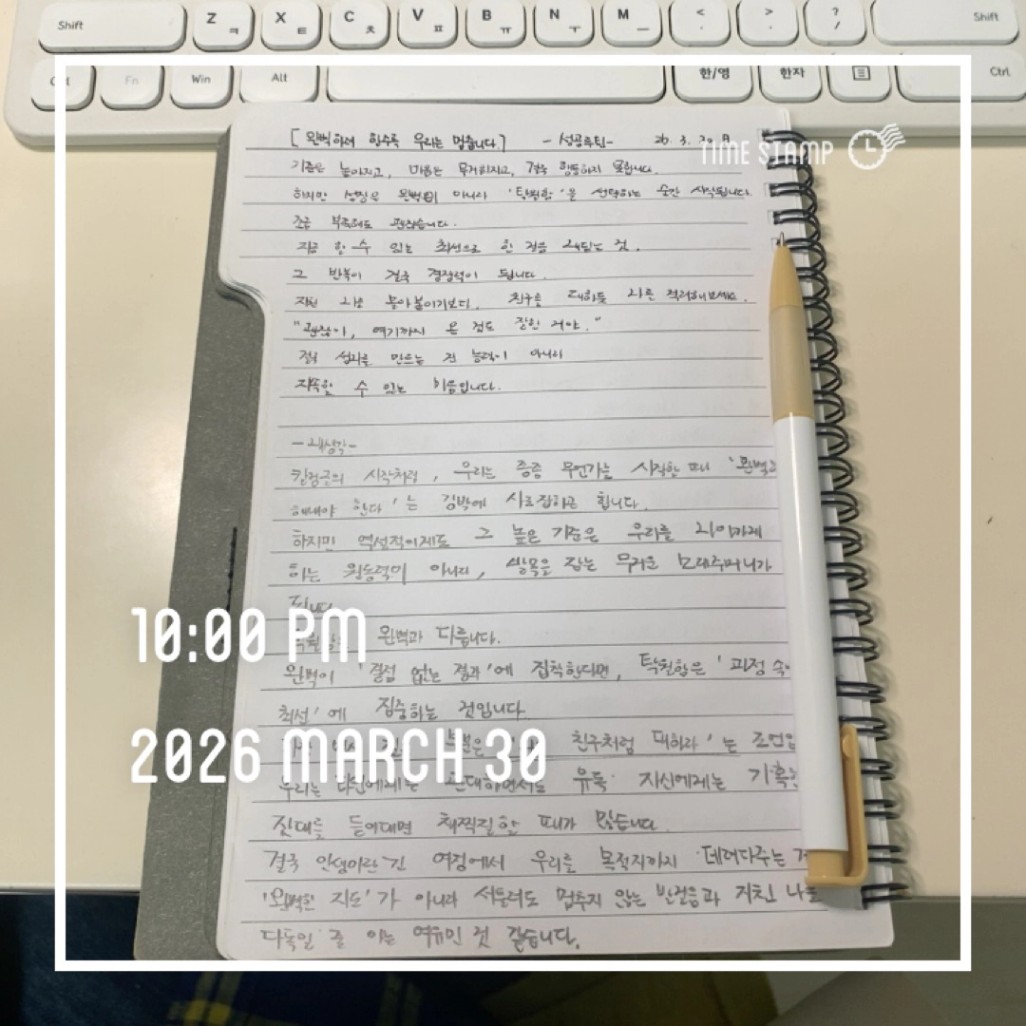 Shift Z ㅋ X ㅌ C ㅊ V ㅍ B ㅠ N ㅜ M ㅡ < , > . ? / Shift
Fn Win Alt 한/영 한자 Ctrl
[완벽하려 할수록 우리는 멈춥니다.] -성공루틴- 26. 3. 30. 월
TIME STAMP
기준은 높아지고, 마음은 무거워지고, 결국 행동하지 못합니다.
하지만 성장은 완벽함이 아니라 '탁월함'을 선택하는 순간 시작됩니다.
조금 부족해도 괜찮습니다.
지금 할 수 있는 최선으로 한 걸음 내딛는 것.
그 반복이 결국 결정력이 됩니다.
지친 나를 몰아붙이기보다, 친구를 대하듯 나를 격려해보세요.
"괜찮아, 여기까지 온 것도 잘한 거야."
결국 성과를 만드는 건 능력이 아니라
지속할 수 있는 마음입니다.
-내생각-
시작처럼, 우리는 종종 무언가를 시작할 때 '완벽
해내야 한다'는 강박에 사로잡히곤 합니다.
하지만 역설적이게도 그 높은 기준은 우리를 나아가게
하는 원동력이 아니라, 발목을 잡는 무거운 모래주머니가
됩니다.
10:00 PM
완벽과 다릅니다.
완벽이 '결점 없는 결과'에 집착한다면, 탁월함은 '과정 속
최선'에 집중하는 것입니다.
2026 MARCH 30
친구처럼 대하라'는 조언
우리는 타인에게는 관대하면서도 유독 자신에게는 가혹
잣대를 들이대면 채찍질할 때가 많습니다.
결국 인생이란 긴 여정에서 우리를 목적지까지 데려다주는
'완벽한 지도'가 아니라 서툴러도 멈추지 않는 반걸음과 지친 나를
다독일 줄 아는 여유인 것 같습니다.